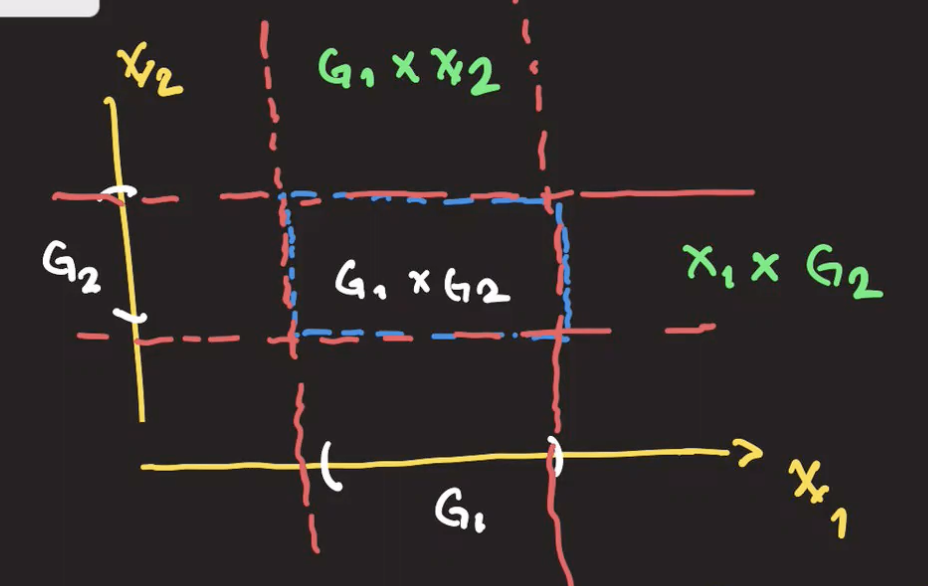 X2
G1 × X2
G2
G1 × G2
X1 × G2
G1
X1